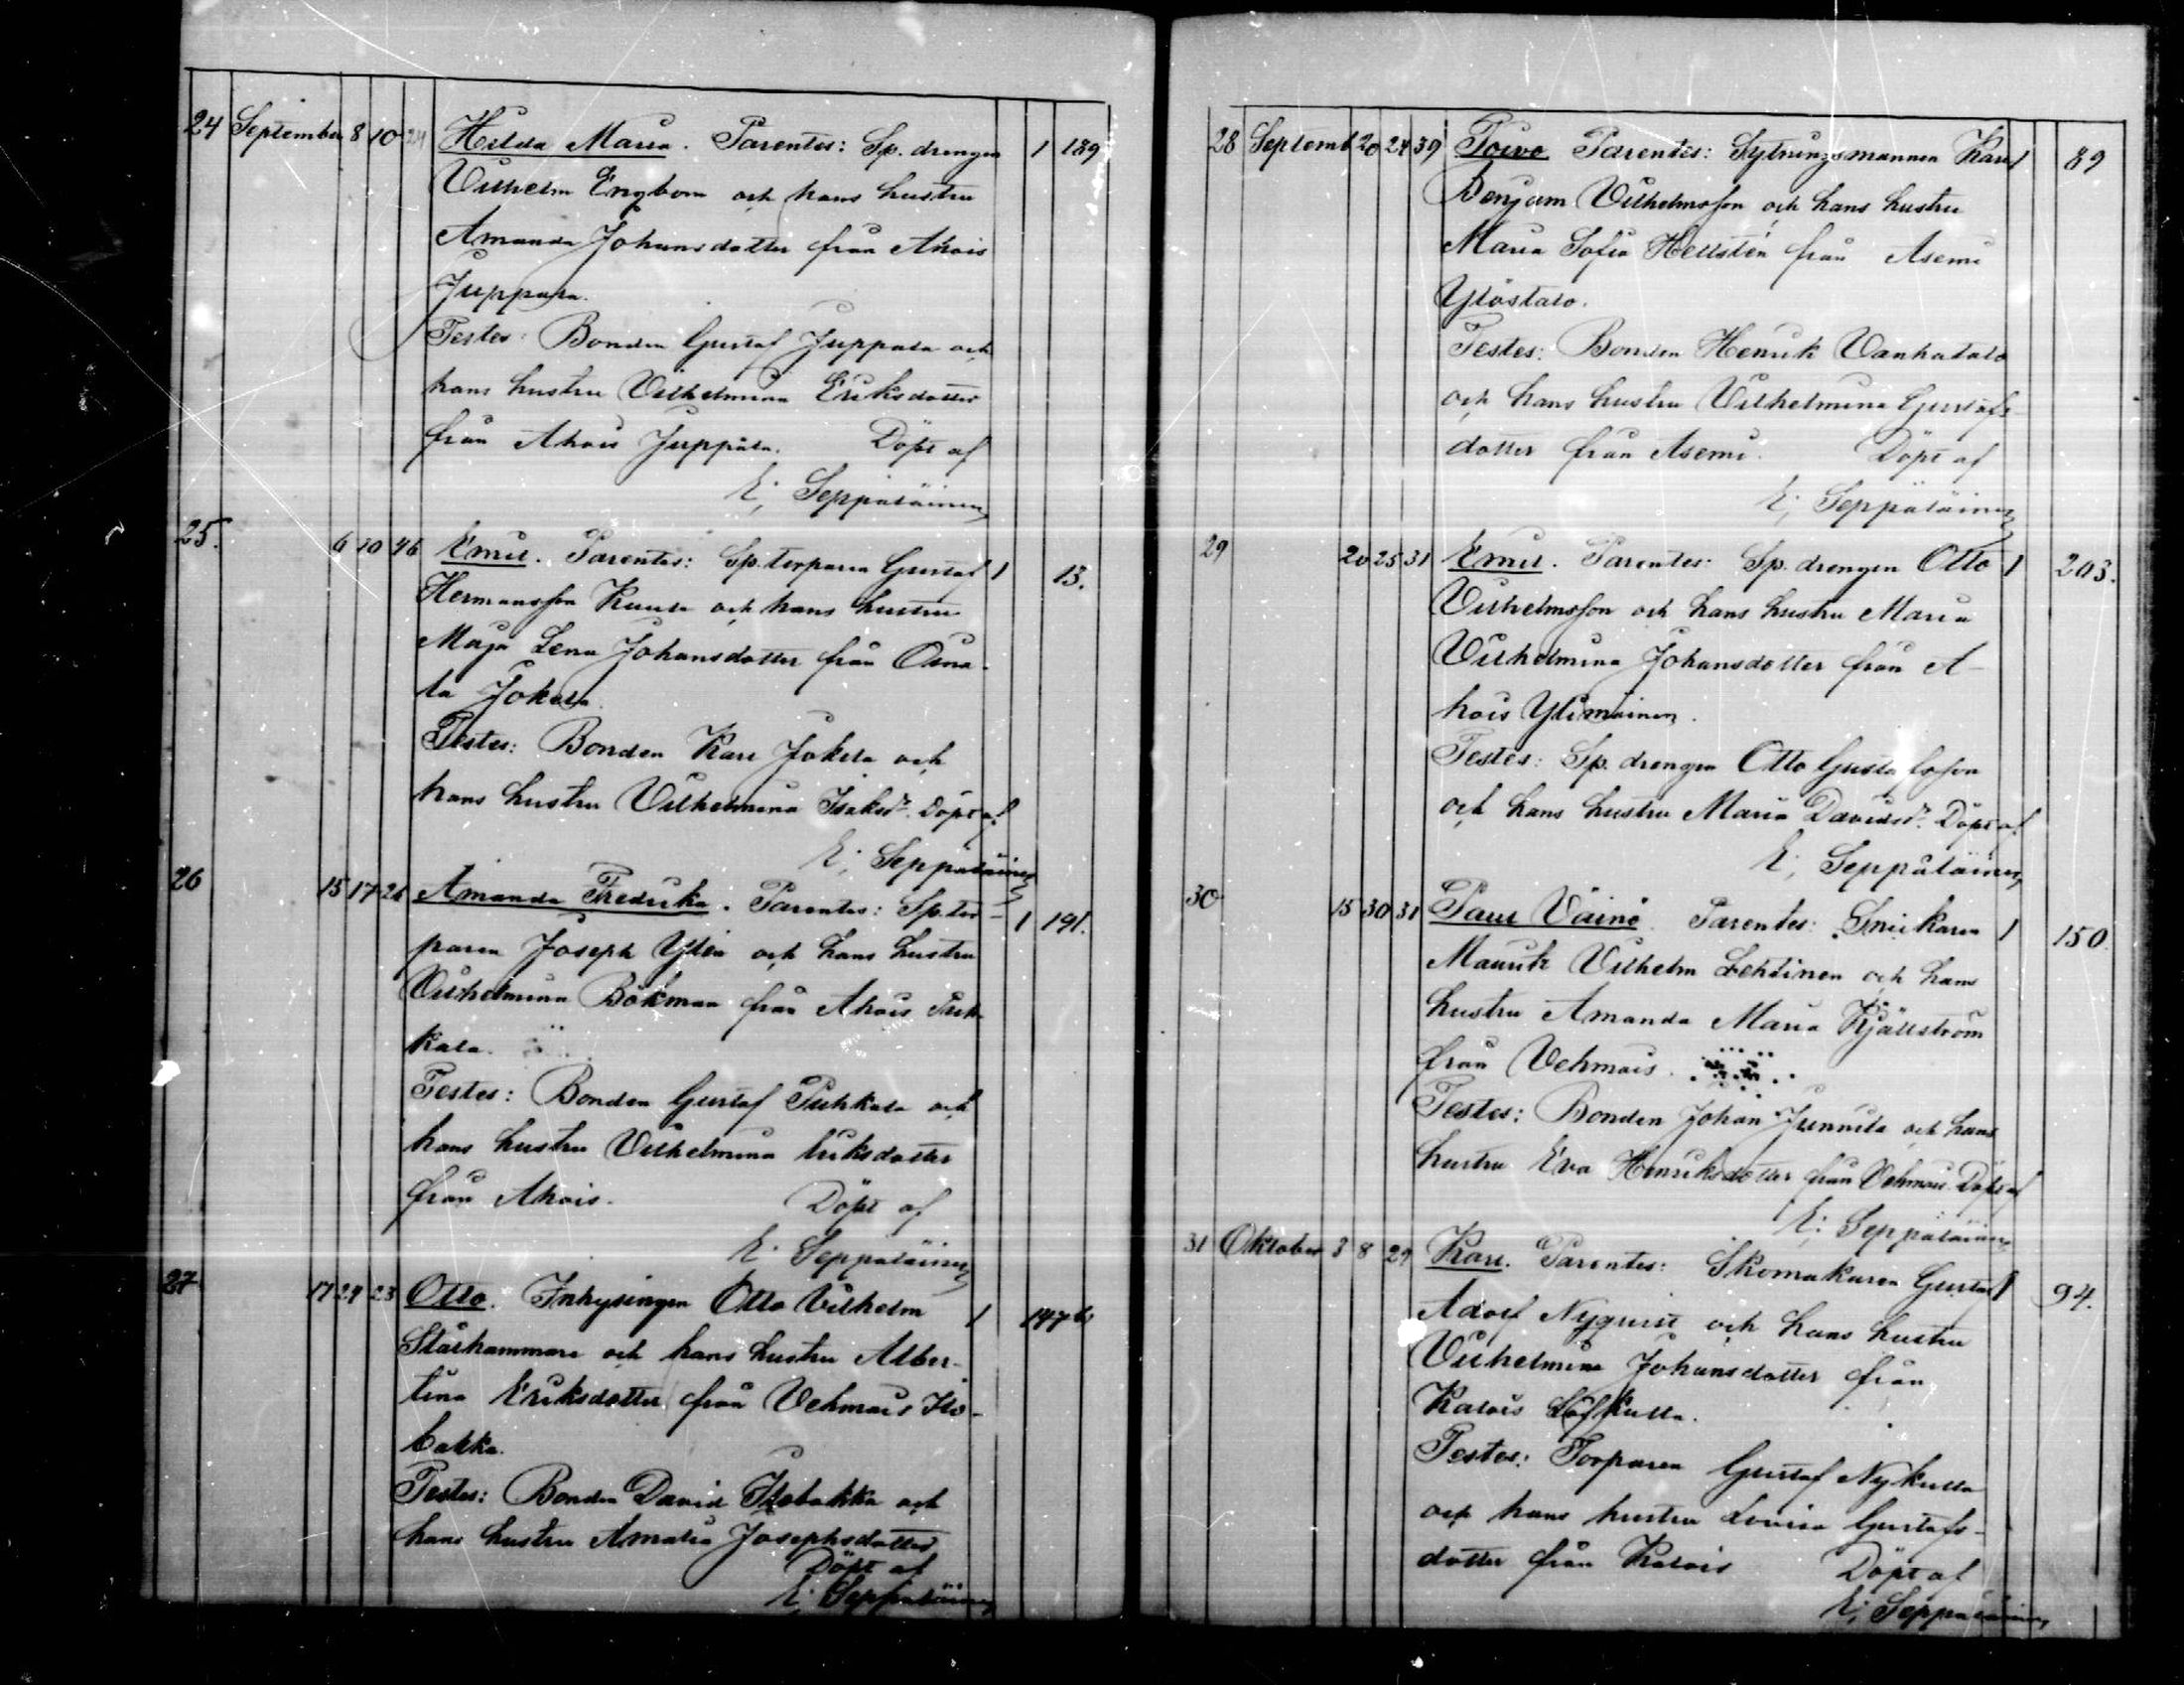 24 September 8 10 24 Hilda Maria. Parentes: Sp. drengen 1 189
Vilhelm Engbom och hans hustru
Amanda Johansdotter från Ahois
Juppala.
Testes: Bonden Gustaf Juppala och
hans hustru Vilhelmina Eriksdotter
från Ahois Juppala. Döpt af
E. Seppäläinen
25. 6 10 46 Emil. Parentes: Sp. torparen Gustaf 1 13.
Hermansson Kuula och hans hustru
Maja Lena Johansdotter från
la Jokela.
Testes: Bonden Karl Jokela och
hans hustru Vilhelmina Isaksdr. Döpt af
E. Seppäläinen
26 15 17 26 Amanda Fredrika. Parentes: Sp. tor- 1 191.
paren Joseph Ylén och hans hustru
Vilhelmina Bökman från Ahois Puh-
kala.
Testes: Bonden Gustaf Puhkala och
hans hustru Vilhelmina Eriksdotter
från Ahois. Döpt af
E. Seppäläinen
27 17 24 23 Otto. Inhysingen Otto Vilhelm 1 147 b
Stålhammare och hans hustru Alber-
tina Eriksdotter från Vehmais Iso-
bakka.
Testes: Bonden David Isobakka och
hans hustru Amalia Josephsdotter
Döpt af
E. Seppäläinen
28 Septemb. 20 24 39 Toivo Parentes: Sytningsmannen Karl 1 89
Benjam Vilhelmsson och hans hustru
Maria Sofia Hellstén från Asemi
Ylöstalo.
Testes: Bonden Henrik Vanhatalo
och hans hustru Vilhelmina Gustafs-
dotter från Asemi. Döpt af
E. Seppäläinen
29 20 25 31 Emil. Parentes: Sp. drengen Otto 1 203.
Vilhelmsson och hans hustru Maria
Vilhelmina Johansdotter från A-
hois Ylimäinen.
Testes: Sp. drengen Otto Gustafsson
och hans hustru Maria Davidsdr. Döpt af
E. Seppäläinen
30 15 30 31 Paul Väinö. Parentes: Snickaren 1 150.
Maurik Vilhelm Lehtinen och hans
hustru Amanda Maria Kjällström
från Vehmais.
Testes: Bonden Johan Junnila och hans
hustru Eva Henriksdotter från Vehmais. Döpt af
E. Seppäläinen
31 Oktober 3 8 29 Karl. Parentes: Skomakaren Gustaf 1 94.
Adolf Nyquist och hans hustru
Vilhelmina Johansdotter från
Kalois Löfkulla.
Testes: Torparen Gustaf Nykulla
och hans hustru Lovisa Gustafs-
dotter från Kalois Döpt af
E. Seppäläinen